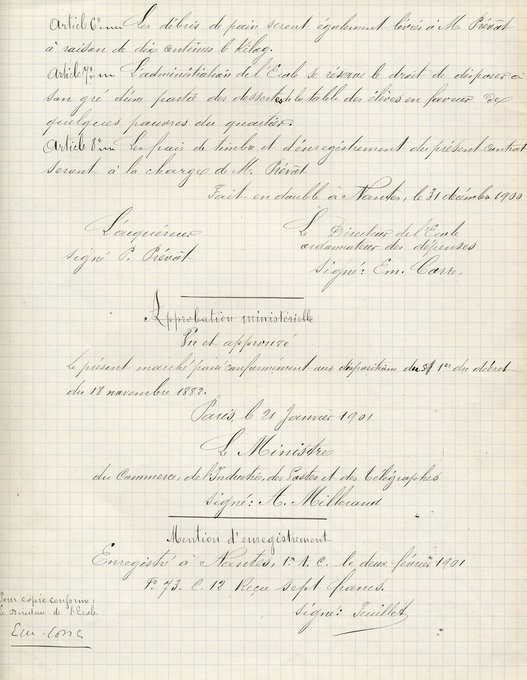 Article 6e. Les débris de pain seront également livrés à M. Prévôt
à raison de dix centimes le kilog.
Article 7e. L'administration de l'Ecole se réserve le droit de disposer à
son gré d'une partie des dessertes de la table des élèves en faveur de
quelques pauvres du quartier.
Article 8e. Les frais de timbre et d'enregistrement du présent contrat
seront à la charge de M. Prévôt.
Fait en double à Nantes, le 31 décembre 1900
L'acquéreur
signé P. Prévôt
Le Directeur de l'Ecole
ordonnateur des dépenses
signé: Em. Corre.
Approbation ministérielle
Vu et approuvé
Le présent marché passé conformément aux dispositions du § 1er du décret
du 18 novembre 1882.
Paris, le 21 Janvier 1901
Le Ministre
du Commerce, de l'Industrie, des Postes et des télégraphes
signé: A. Millerand
Mention d'enregistrement
Enregistré à Nantes, 1er A. C. le deux février 1901
Fo 73. C. 12 Reçu sept francs.
signé: Feuillet
Pour copie conforme,
Le Directeur de l'Ecole.
Em. Corre